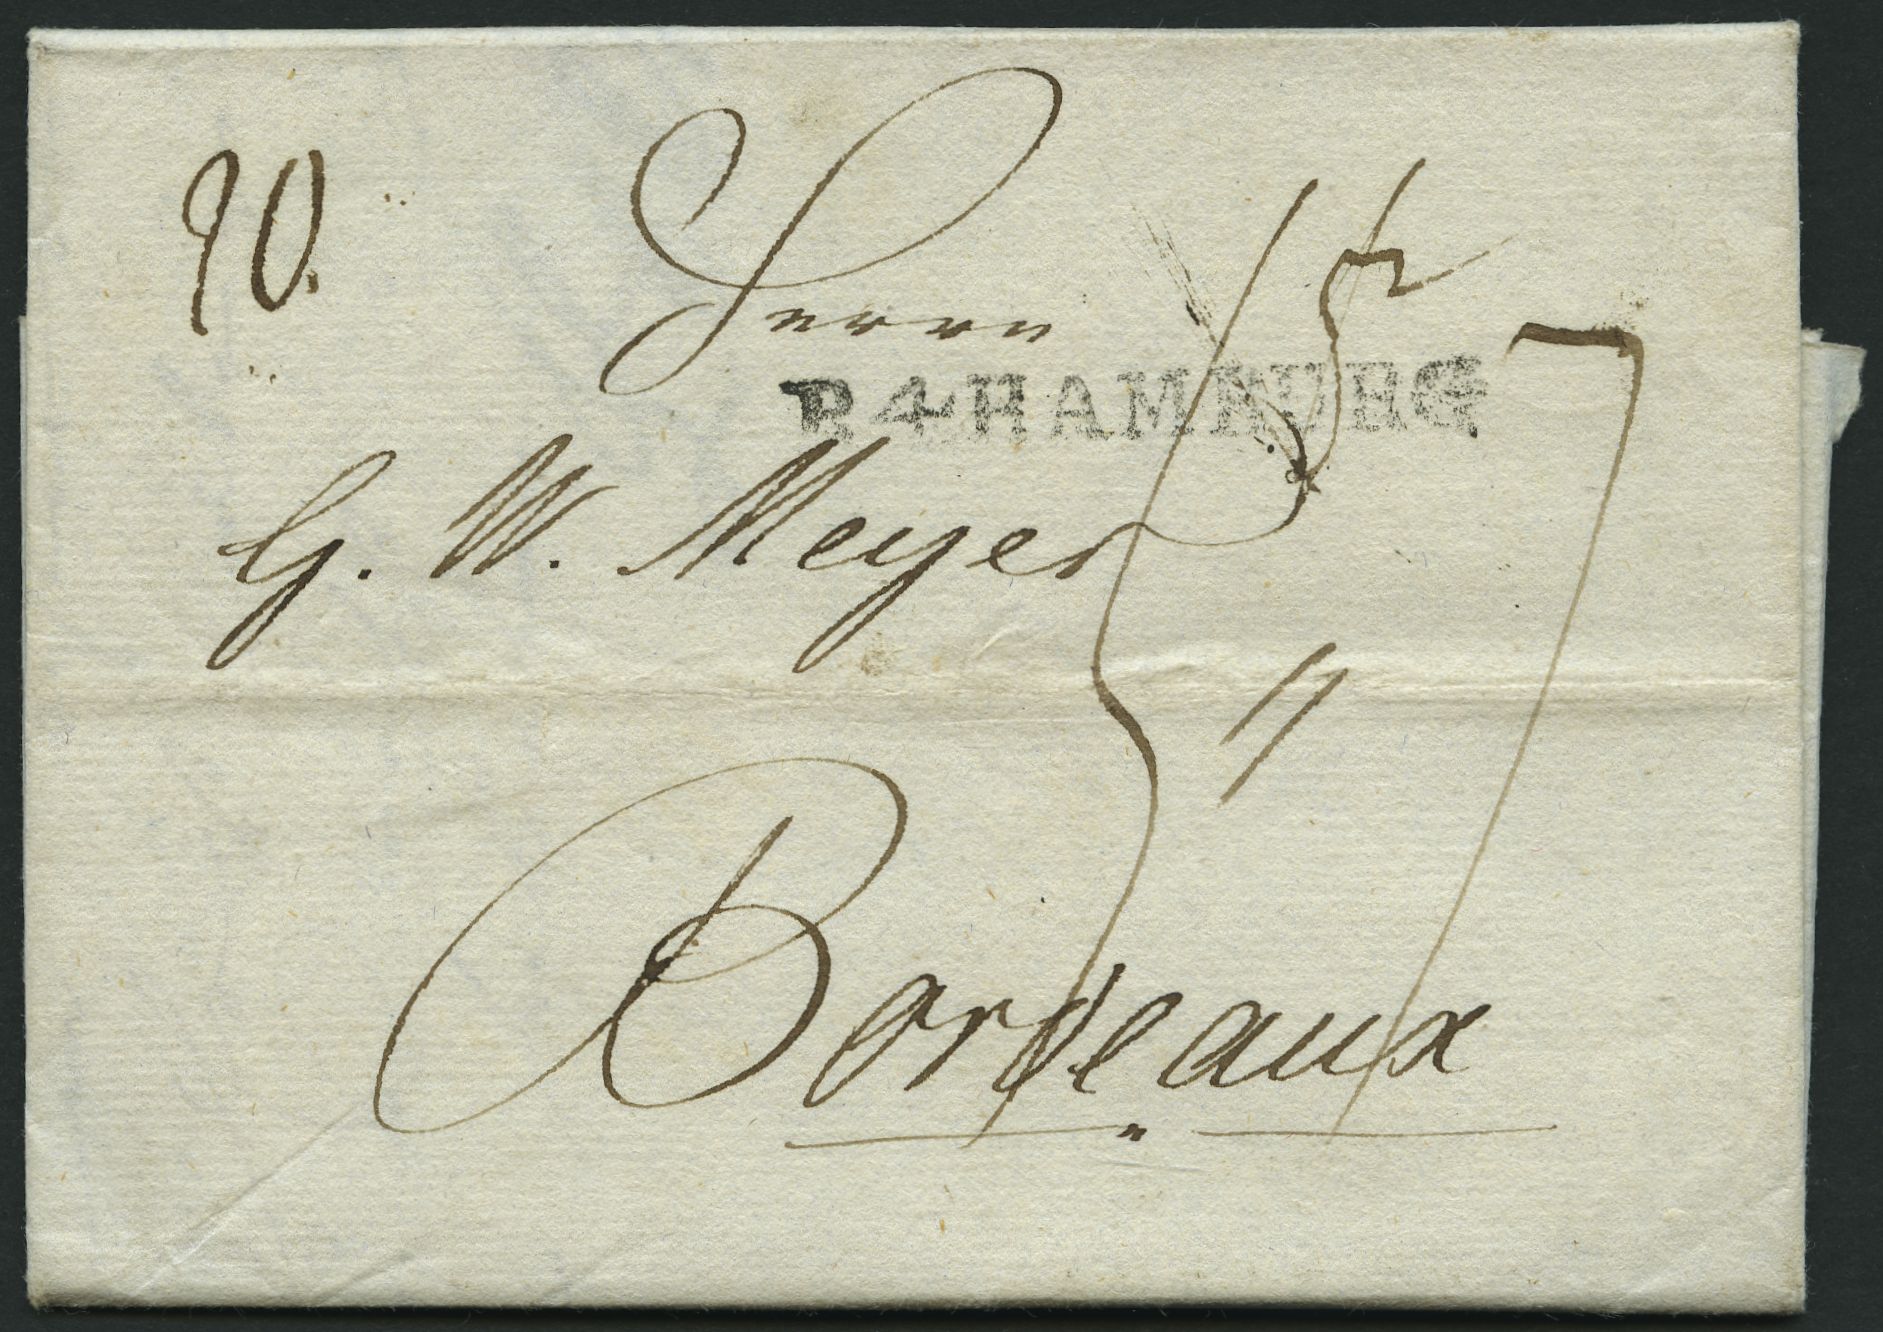 90.
Herrn
R.4.HAMBURG
G. W. Meyer
Bordeaux